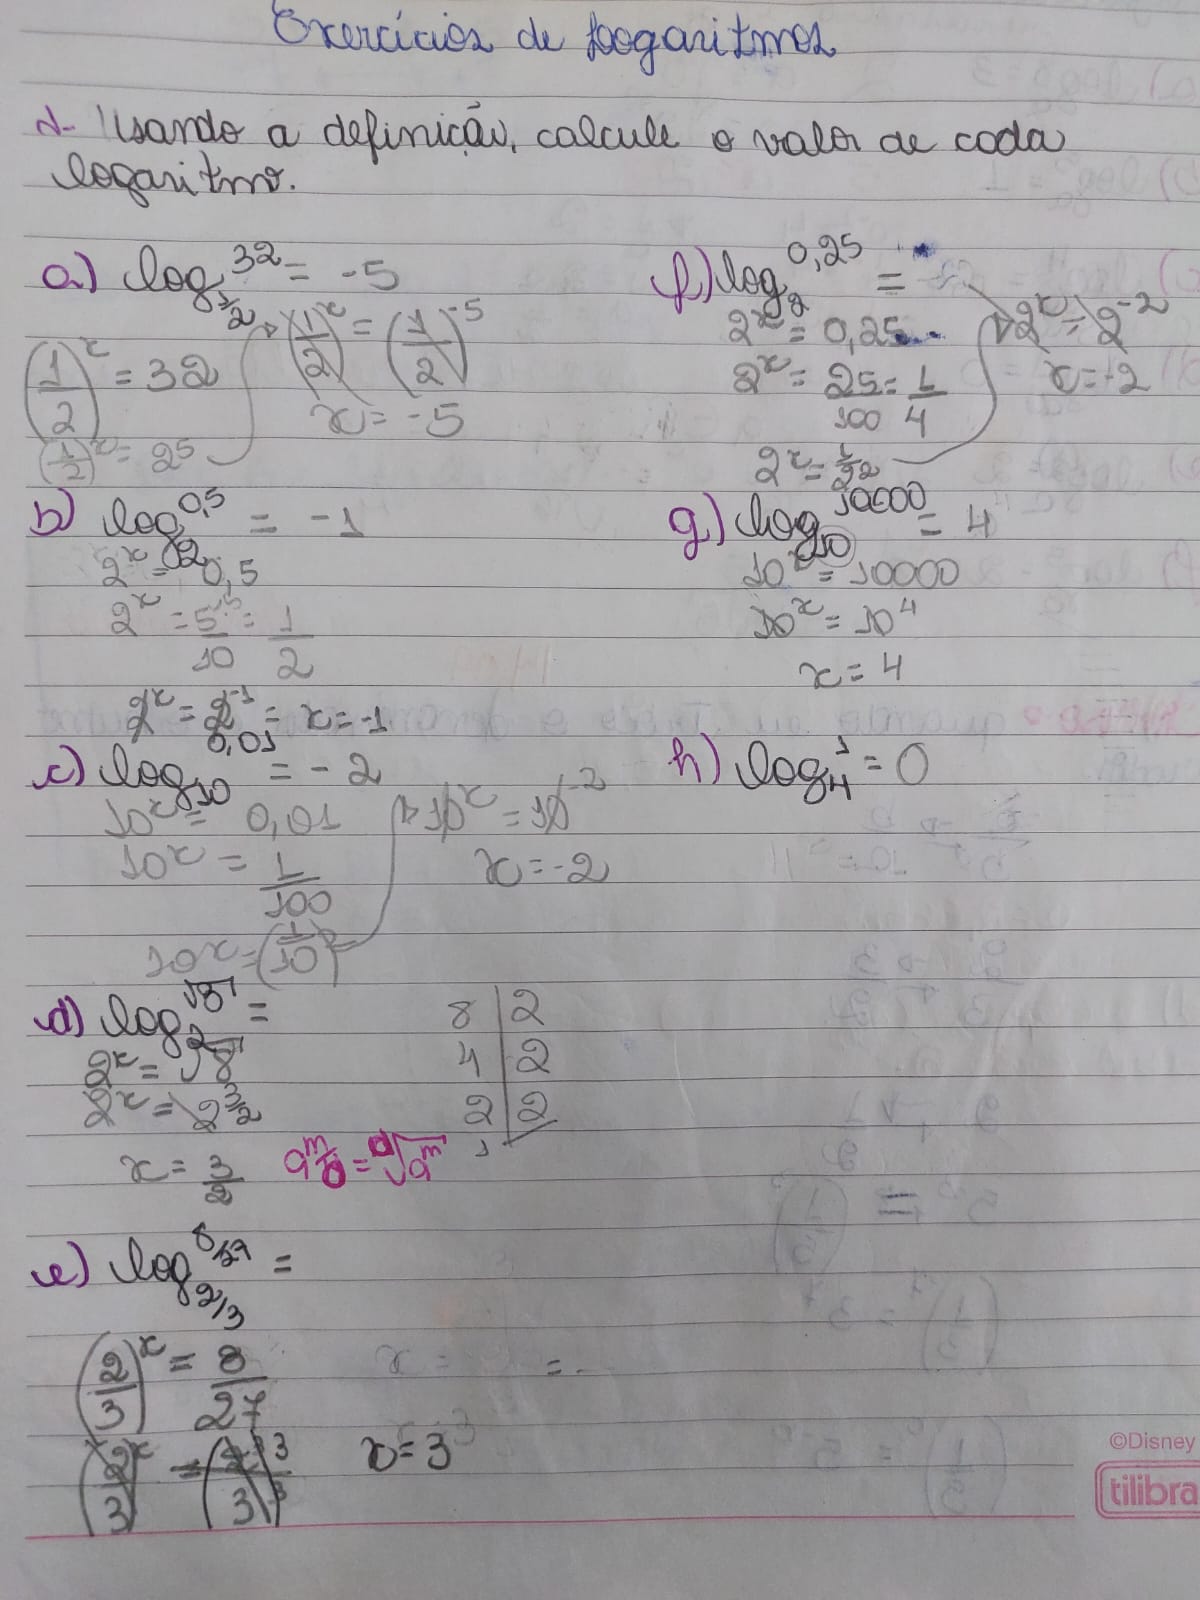 Exercícios de logaritmos
1- Usando a definição, calcule o valor de cada
logaritmo.
a) log_{1/2} 32 = -5
(1/2)^x = 32
(1/2)^x = 2^5
(1/2)^x = (1/2)^{-5}
x = -5
b) log_2 0,5 = -1
2^x = 0,5
2^x = 5/10 = 1/2
2^x = 2^{-1} = x = -1
c) log_{10} 0,01 = -2
10^x = 0,01
10^x = 1/100
10^x = (1/10)^2
10^x = 10^{-2}
x = -2
d) log_2 √8 =
2^x = √8
2^x = 2^{3/2}
x = 3/2
8 | 2
4 | 2
2 | 2
1
a^{m/n} = ⁿ√a^m
e) log_{2/3} 8/27 =
(2/3)^x = 8/27
x = =
(2/3)^x = (2/3)^3
x = 3
f) log_2 0,25 =
2^x = 0,25
2^x = 25/100 = 1/4
2^x = 1/2^2
2^x = 2^{-2}
x = -2
g) log_{10} 10000 = 4
10^x = 10000
10^x = 10^4
x = 4
h) log_4 1 = 0
©Disney
tilibra